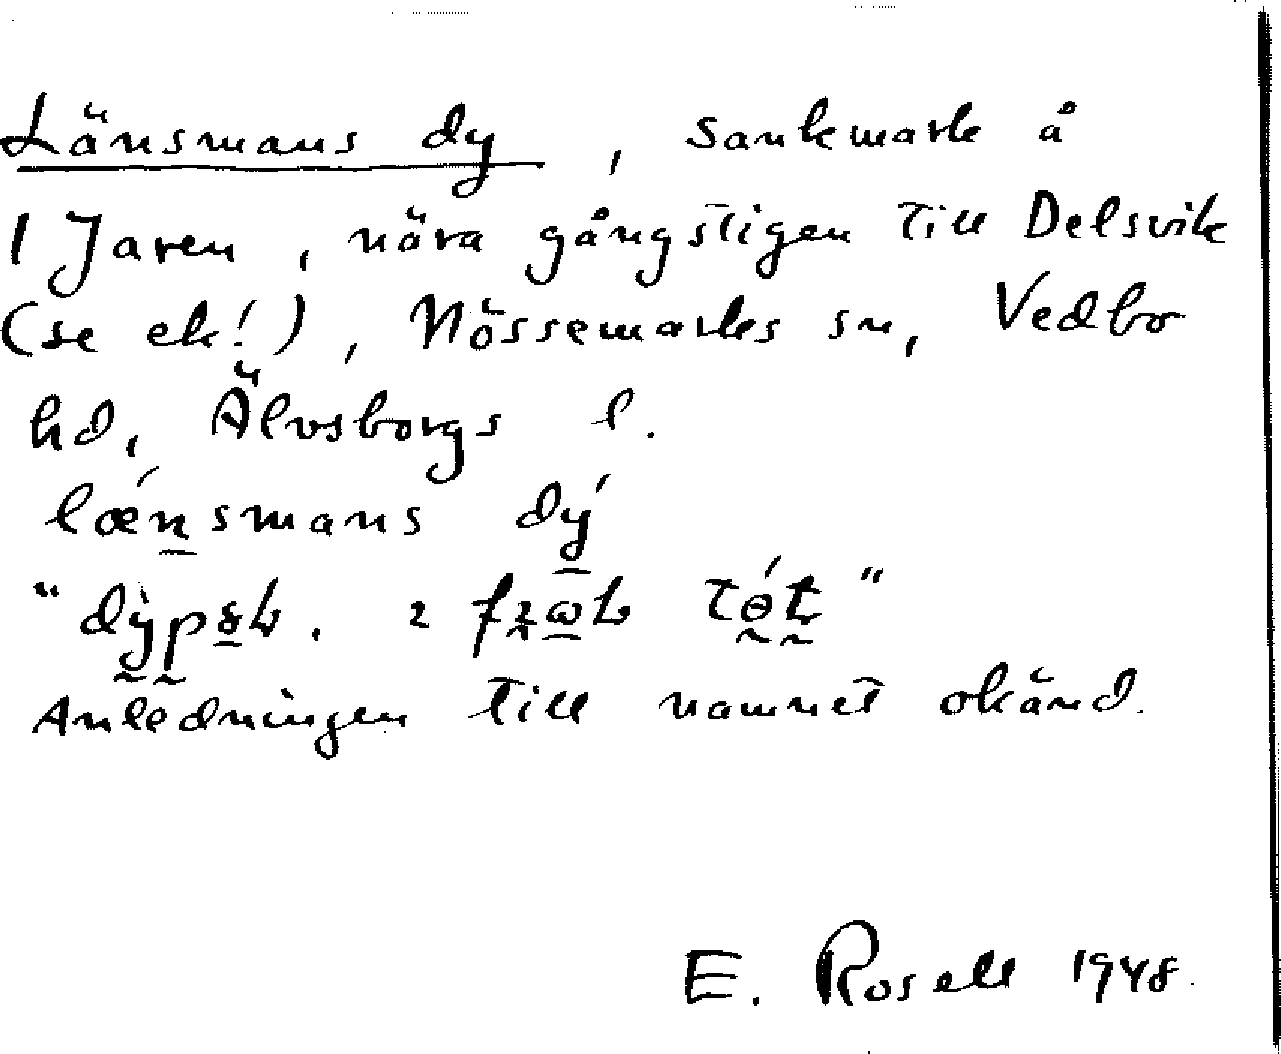 Länsmans dy, sankmark å
1 Jaren, nära gångstigen till Delsvik
(se ek!), Nössemarks sn, Vedbo
hd, Älvsborgs l.
lǽnsmans dý
Anledningen till namnet okänd.
E. Rosell 1948.